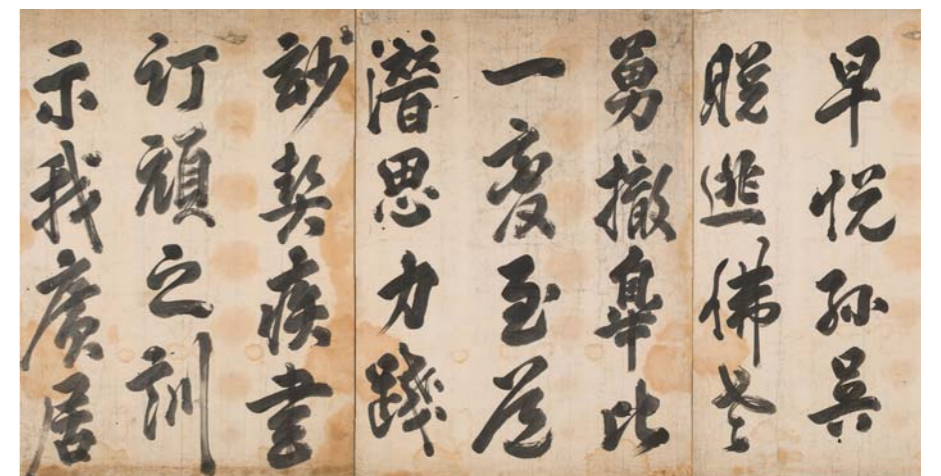 早悅孫吳
晚逃佛老
勇撤皐比
一變至道
潛思力踐
妙契疾書
訂頑之訓
示我廣居